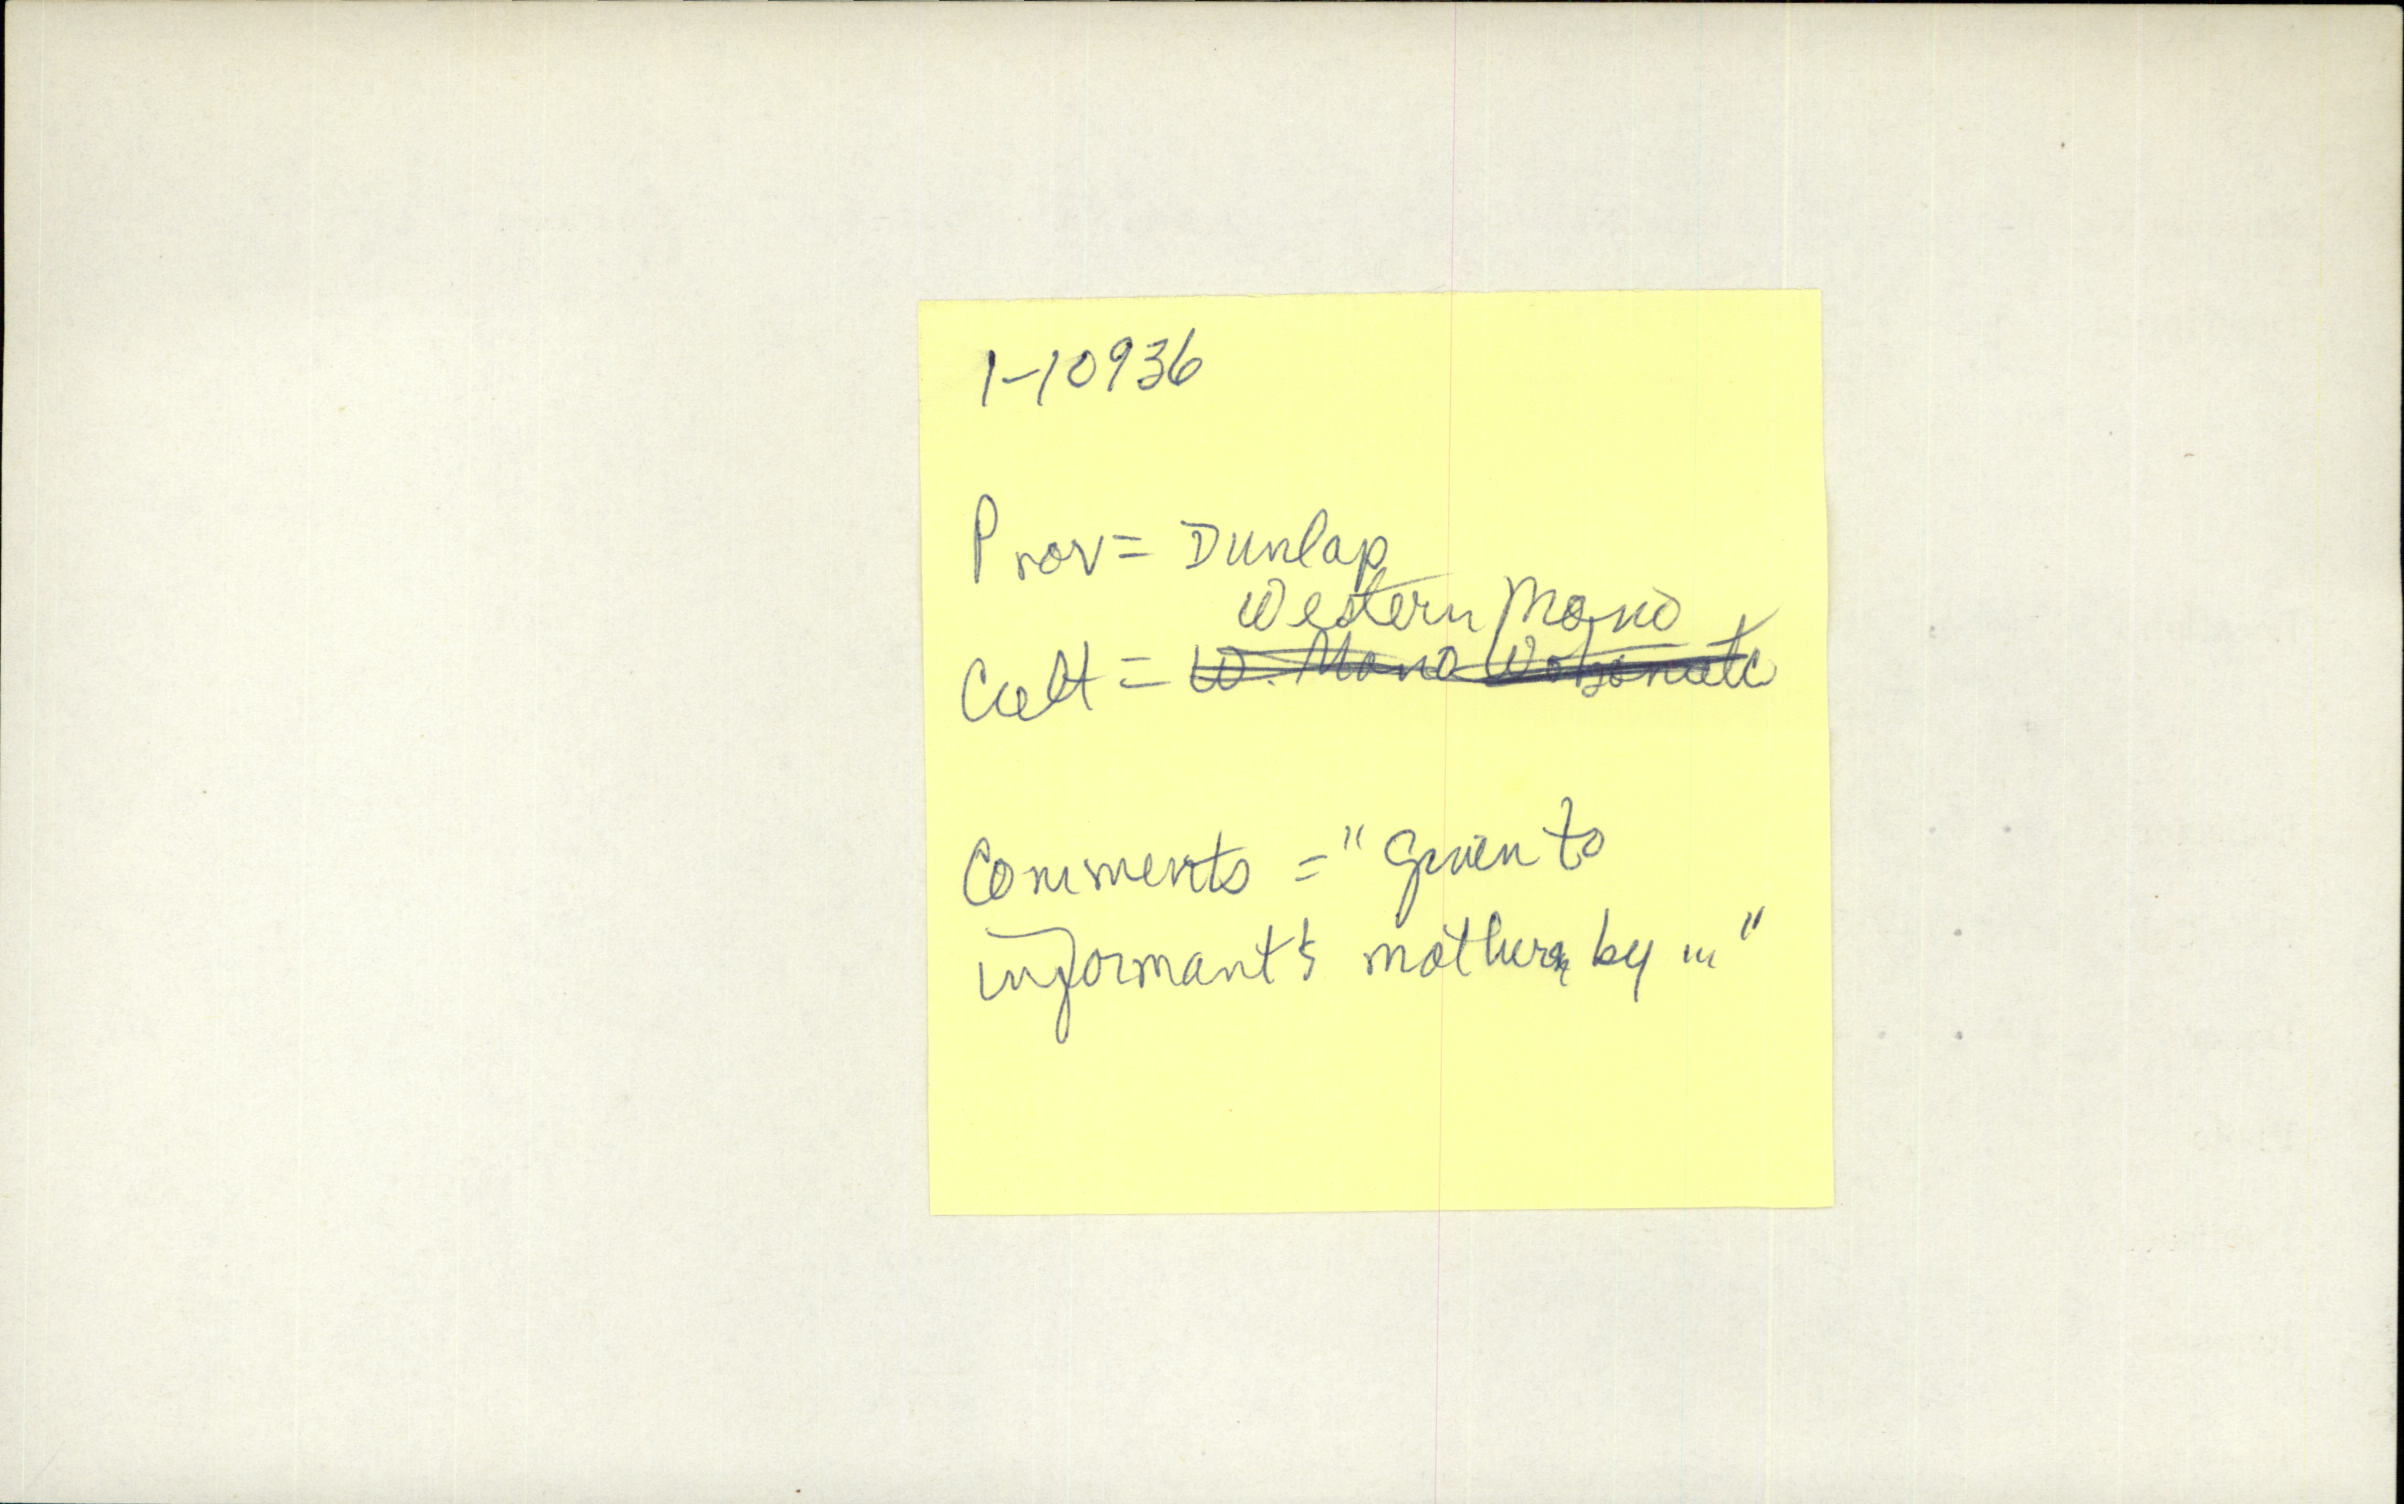 1-10936
Prov = Dunlap
Western Mono
Cult = W. Mono Wobonuch
Comments = "Given to
informant's mother by ..."